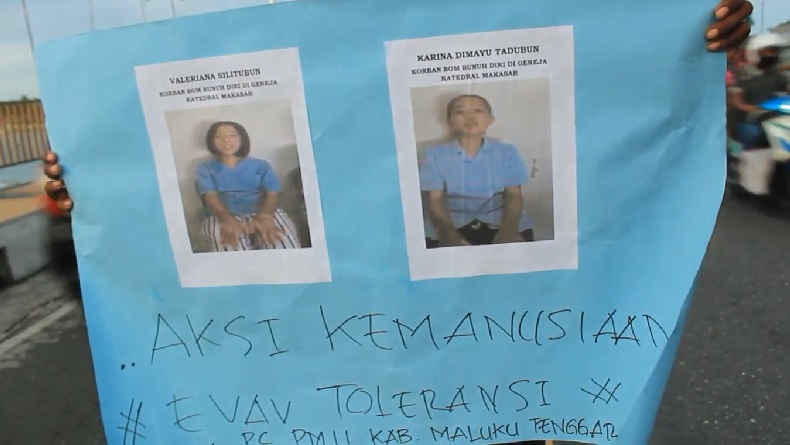 VALERIANA SILITUBUN
KORBAN BOM BUNUH DIRI DI GEREJA
KATEDRAL MAKASAR
KARINA DIMAYU TADUBUN
KORBAN BOM BUNUH DIRI DI GEREJA
KATEDRAL MAKASAR
..AKSI KEMANUSIAAN
# EVAV TOLERANSI #
PC PMII KAB. MALUKU TENGGAR